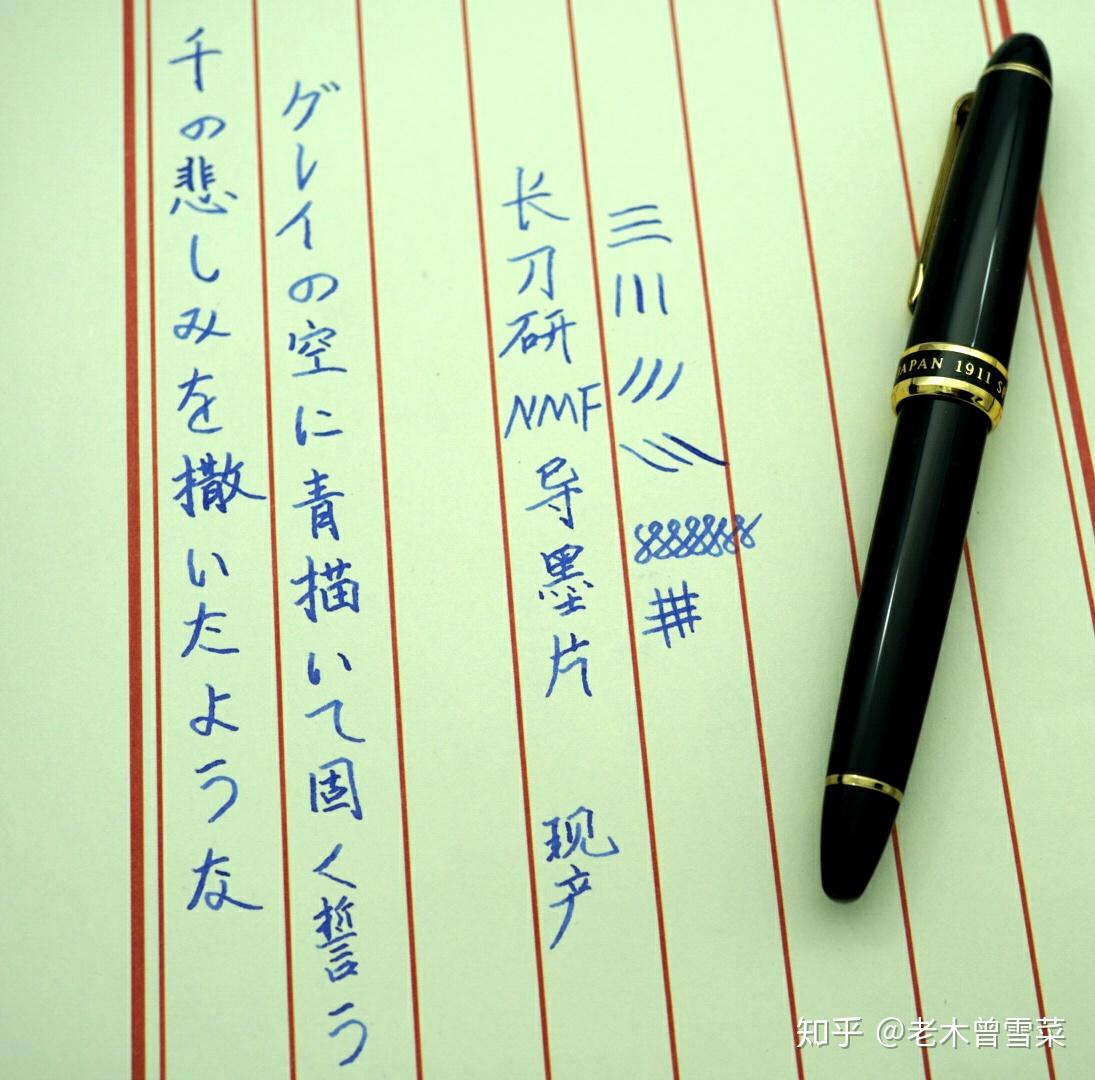 长刀研NMF导墨片 现产
グレイの空に青描いて固く誓う
千の悲しみを撒いたような
JAPAN 1911
知乎 @老木曾雪菜